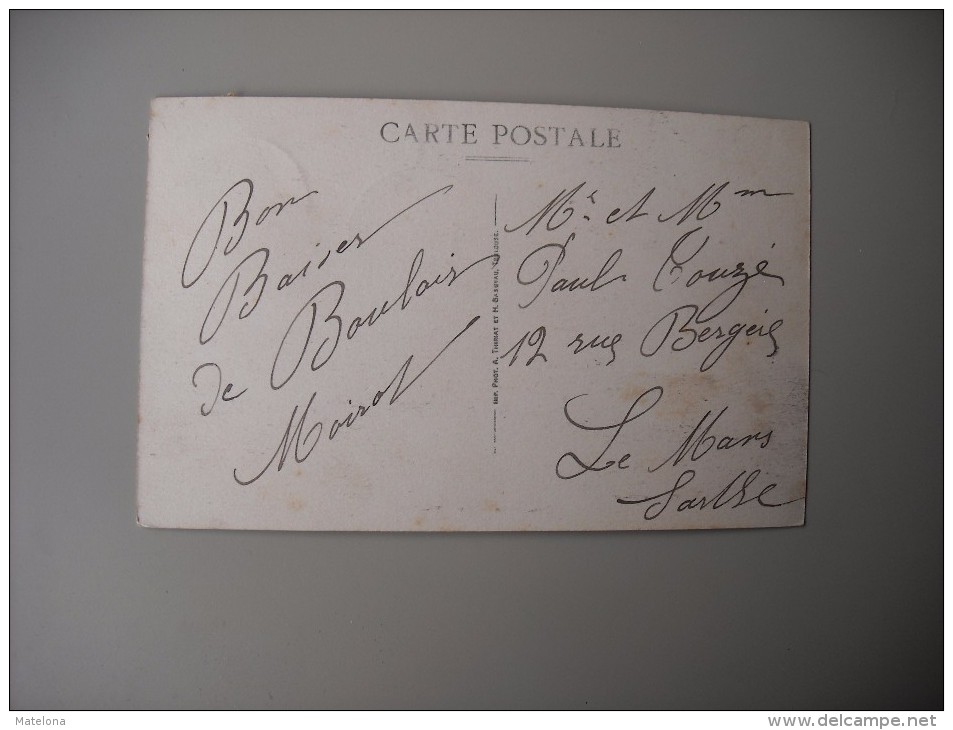 CARTE POSTALE
Bon
Baiser
de Boulois
Moirot
IMP. PHOT. A. THIRIAT ET H. BASUYAU, TOULOUSE.
Mr et Mm
Paul Touzé
12 rue Bergère
Le Mans
Sarthe
Matelona
www.delcampe.net